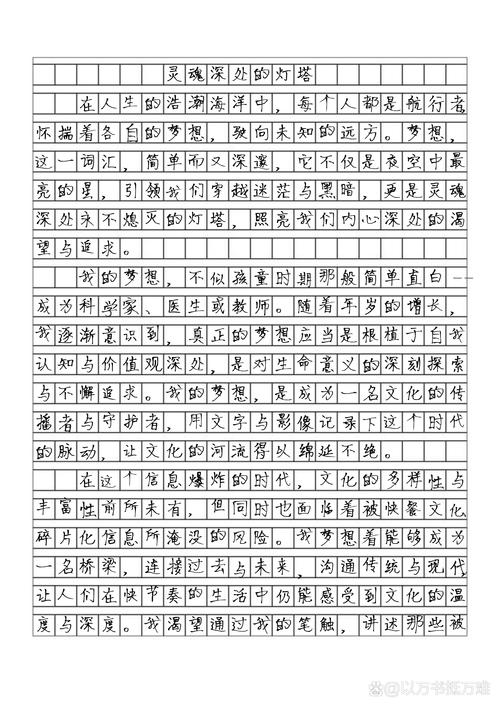 灵魂深处的灯塔
在人生的浩瀚海洋中，每个人都是航行者，
怀揣着各自的梦想，驶向未知的远方。梦想，
这一词汇，简单而又深邃，它不仅是夜空中最
亮的星，引领我们穿越迷茫与黑暗，更是灵魂
深处永不熄灭的灯塔，照亮我们内心深处的渴
望与追求。
我的梦想，不似孩童时期那般简单直白--
成为科学家、医生或教师。随着年岁的增长，
我逐渐意识到，真正的梦想应当是根植于自我
认知与价值观深处，是对生命意义的深刻探索
与不懈追求。我的梦想，是成为一名文化的传
播者与守护者，用文字与影像记录下这个时代
的脉动，让文化的河流得以绵延不绝。
在这个信息爆炸的时代，文化的多样性与
丰富性前所未有，但同时也面临着被快餐文化
碎片化信息所淹没的风险。我梦想着能够成为
一名桥梁，连接过去与未来，沟通传统与现代，
让人们在快节奏的生活中仍能感受到文化的温
度与深度。我渴望通过我的笔触，讲述那些被
@以万书抵万难